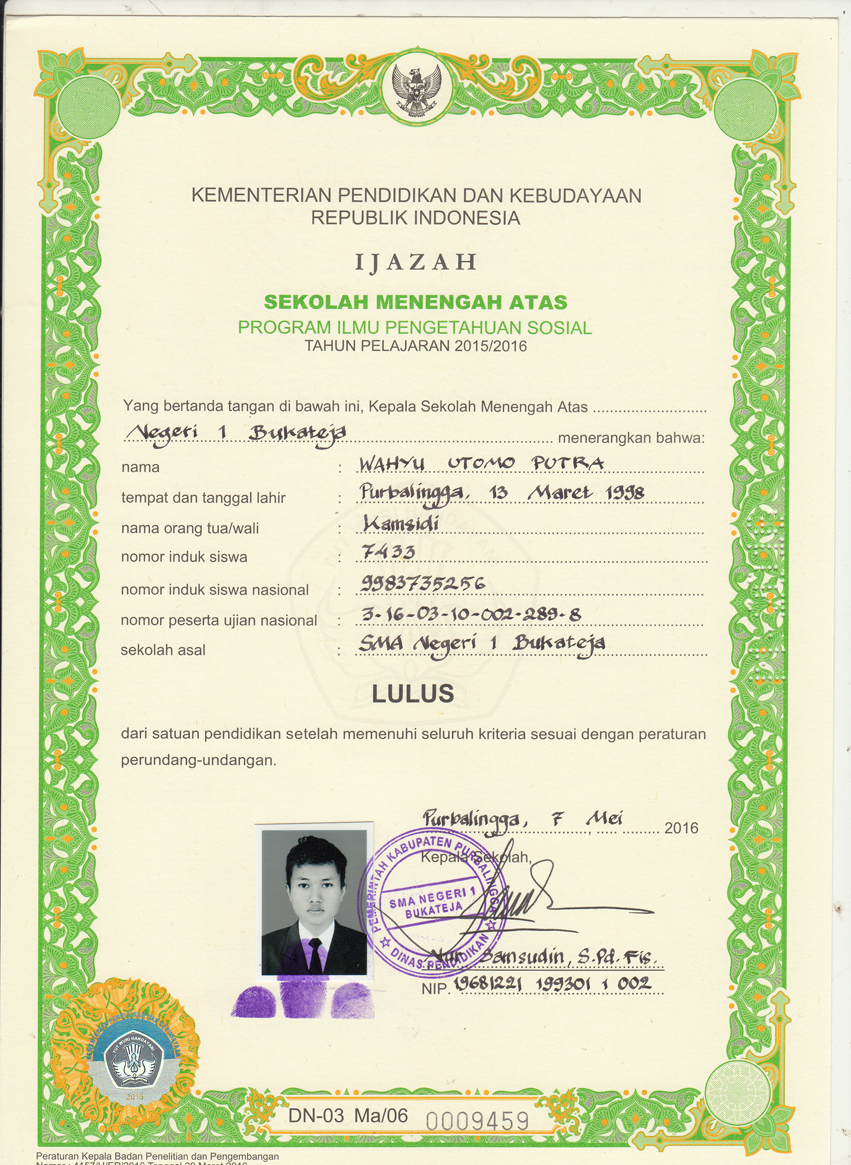 KEMENTERIAN PENDIDIKAN DAN KEBUDAYAAN
REPUBLIK INDONESIA
IJAZAH
SEKOLAH MENENGAH ATAS
PROGRAM ILMU PENGETAHUAN SOSIAL
TAHUN PELAJARAN 2015/2016
Yang bertanda tangan di bawah ini, Kepala Sekolah Menengah Atas ...........................
Negeri 1 Bukateja ................................................. menerangkan bahwa:
nama : WAHYU UTOMO PUTRA
tempat dan tanggal lahir : Purbalingga, 13 Maret 1998
nama orang tua/wali : Kamsidi
nomor induk siswa : 7433
nomor induk siswa nasional : 9983735256
nomor peserta ujian nasional : 3-16-03-10-002-289-8
sekolah asal : SMA Negeri 1 Bukateja
LULUS
dari satuan pendidikan setelah memenuhi seluruh kriteria sesuai dengan peraturan
perundang-undangan.
Purbalingga, 7 Mei 2016
Kepala Sekolah,
PEMERINTAH KABUPATEN PURBALINGGA
SMA NEGERI 1
BUKATEJA
DINAS PENDIDIKAN
Samsudin, S.Pd. Fis.
NIP. 19681221 199301 1 002
TUT WURI HANDAYANI
2016
DN-03 Ma/06 0009459
Peraturan Kepala Badan Penelitian dan Pengembangan